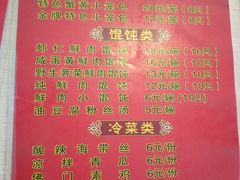 特色蟹黄小笼包 26元/(8只)
金牌特色小笼包 12元/(8只)
馄饨类
虾仁鲜肉馄饨 18元/碗(10只)
咸蛋黄鲜肉馄饨 16元/碗(10只)
野生荠菜鲜肉馄饨 15元/碗(10只)
纯鲜肉馄饨 10元/碗(10只)
鲜肉小馄饨 6元/碗
油豆腐粉丝汤 5元/碗
冷菜类
酸辣海带丝 6元/份
京拌青瓜 6元/份
佛门素鸡 6元/份